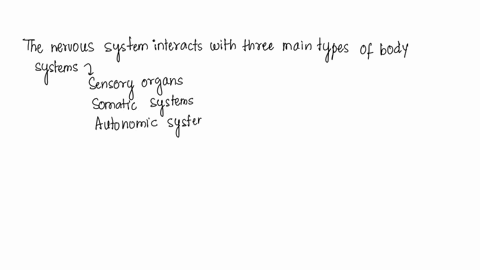 The nervous system interacts with three main types of body
systems
Sensory organs
Somatic systems
Autonomic syster